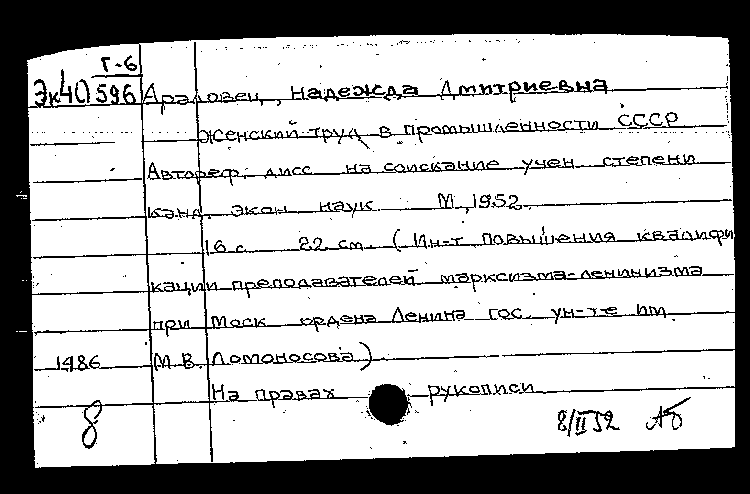 Г-6
Эк40596 Араловец, Надежда Дмитриевна
Женский труд в промышленности СССР
Автореф. дисс. на соискание учен. степени
канд. экон. наук М., 1952.
16 с. 22 см. (Ин-т повышения квалифи
кации преподавателей марксизма-ленинизма
при Моск. ордена Ленина гос. ун-те им.
1486 М. В. Ломоносова)
На правах рукописи
8 8/II 52 АБ